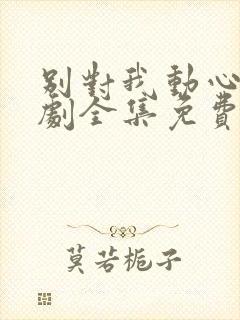 别對我動心
劇全集免費
莫若梔子